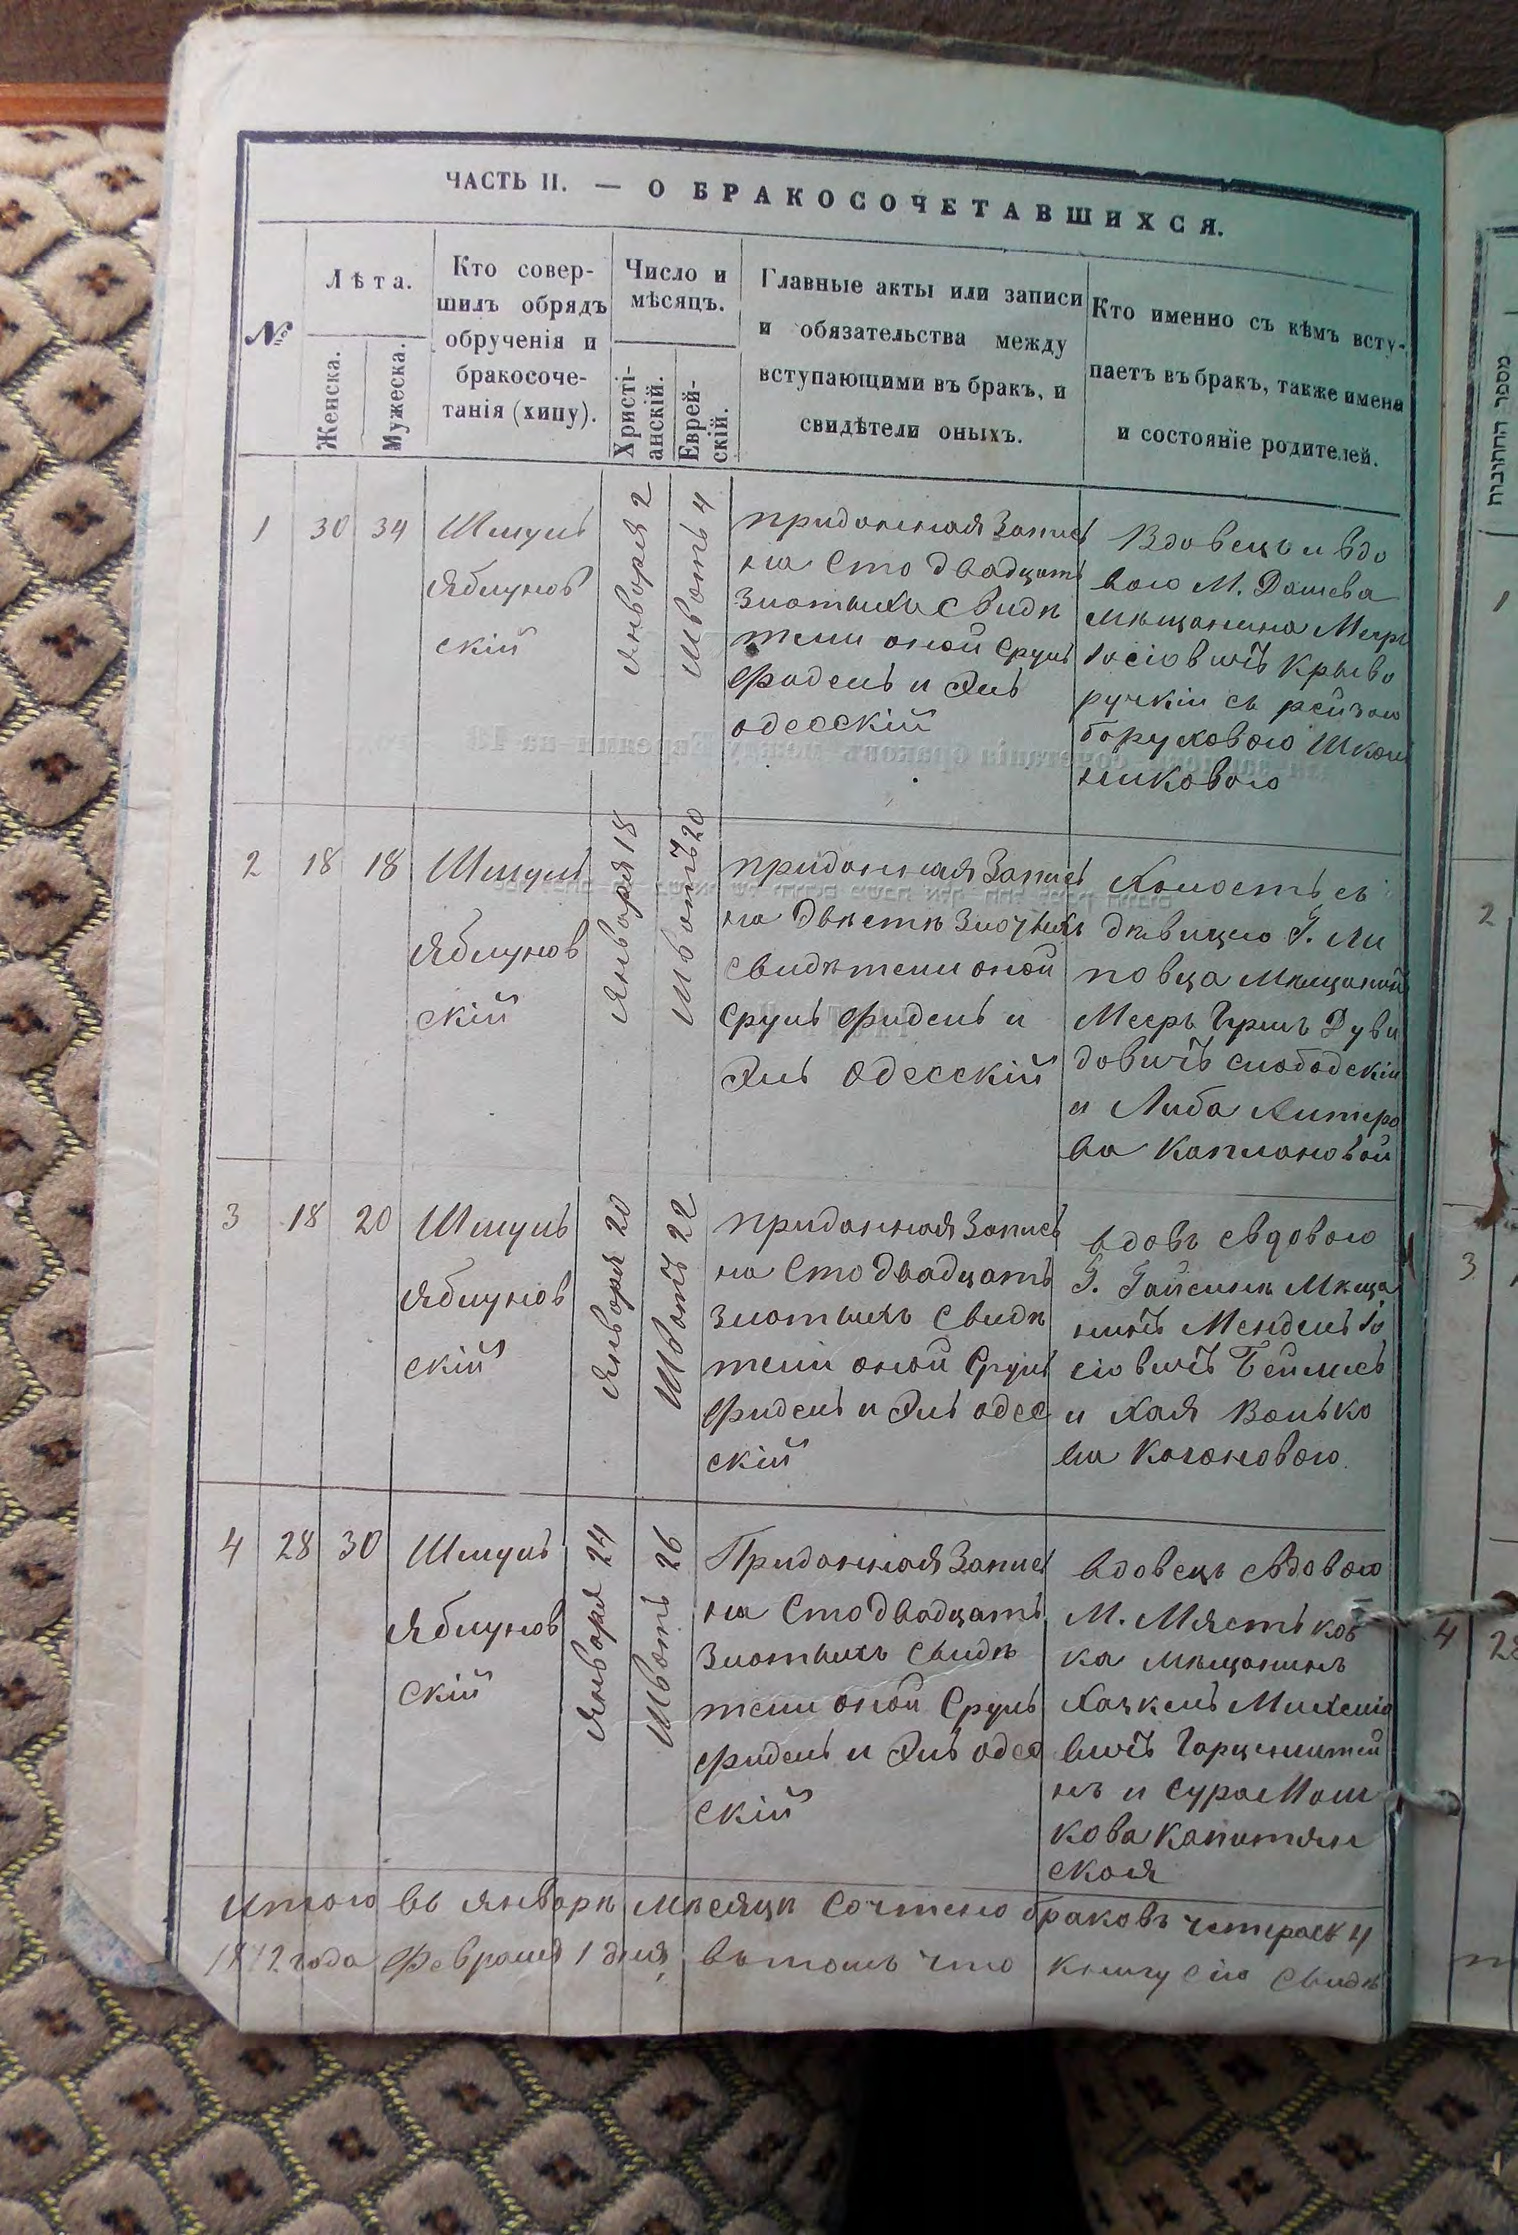 ЧАСТЬ II. — О БРАКОСОЧЕТАВШИХСЯ.
№
Лѣта.
Женска.
Мужеска.
Кто совер-
шилъ обрядъ
обрученія и
бракосоче-
танія (хипу).
Число и
мѣсяцъ.
Христі-
анскій.
Еврей-
скій.
Главные акты или записи
и обязательства между
вступающими въ бракъ, и
свидѣтели оныхъ.
Кто именно съ кѣмъ всту-
паетъ въ бракъ, также имена
и состояніе родителей.
1
30
34
Шмуль
Яблунов
скій
Января 2
Шватъ 4
Приданная Запись
на Сто двадцать
Злотыхъ Свидѣ
тели оной Сруль
Фидель и Эль
одесскій
Вдовецъ и вдо
вою М. Дашева
мѣщанина Мееръ
Іосіовичъ Крыво
ручкій съ рейзою
боруховою Школь
никовою
2
18
18
Шмуль
Яблунов
скій
Января 18
Шватъ 20
Приданная Запись
на Двѣстѣ Злотыхъ
Свидѣтели оной
Сруль Фидель и
Эль Одесскій
Холостъ съ
дѣвицею Г. Ли
повца Мѣщаный
Мееръ Гершъ Дуви
довичъ слободскій
и Либа Литеро
ва Каплановой
3
18
20
Шмуль
Яблунов
скій
Января 20
Шватъ 22
Приданная Запись
на Сто двадцать
Злотыхъ Свидѣ
тели оной Сруль
Фидель и Эль одес
скій
вдовъ съвдовою
Г. Гайсина Мѣща
нинъ Мендель Іо
сіовичъ Беймесъ
и Хая Волько
ва Когановою.
4
28
30
Шмуль
Яблунов
скій
Января 24
Шватъ 26
Приданная Запись
на Сто двадцать
Злотыхъ Свидѣ
тели оной Сруль
Фидель и Эль одес
скій
вдовецъ съвдовою
М. Мястьков
ка мѣщанинъ
Хацкель Михеліо
вичъ Горценштей
нъ и Сура Мош
кова Капитян
ская
Итого въ январѣ мѣсяцѣ Сочтено браковъ четыре 4
года Февраля 1 дня, въ томъ что книгу сію Свидѣ
מספר החתונות
1
2
3
4
28